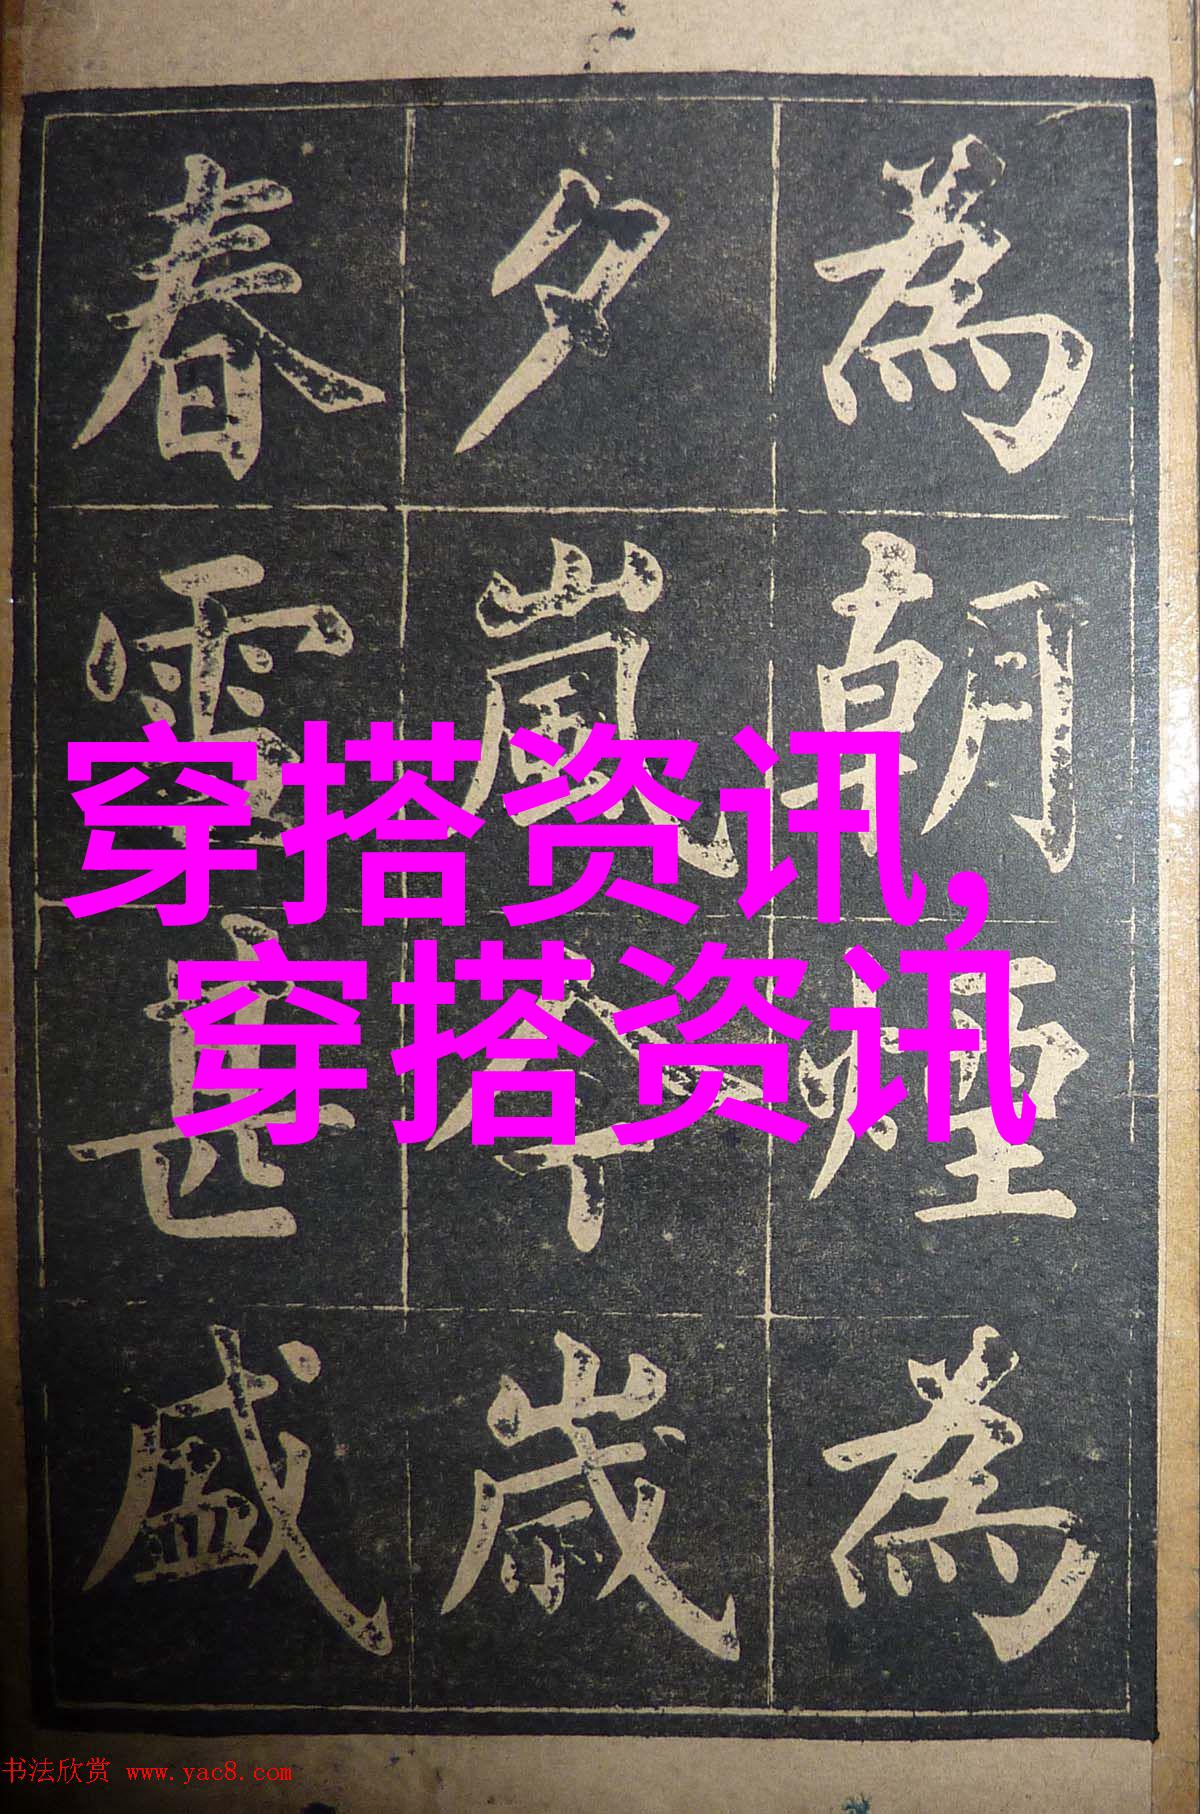 為朝煙為
夕嵐今歲
春雪甚盛
穿搭资讯,
穿搭资讯
书法欣赏 www.yac8.com